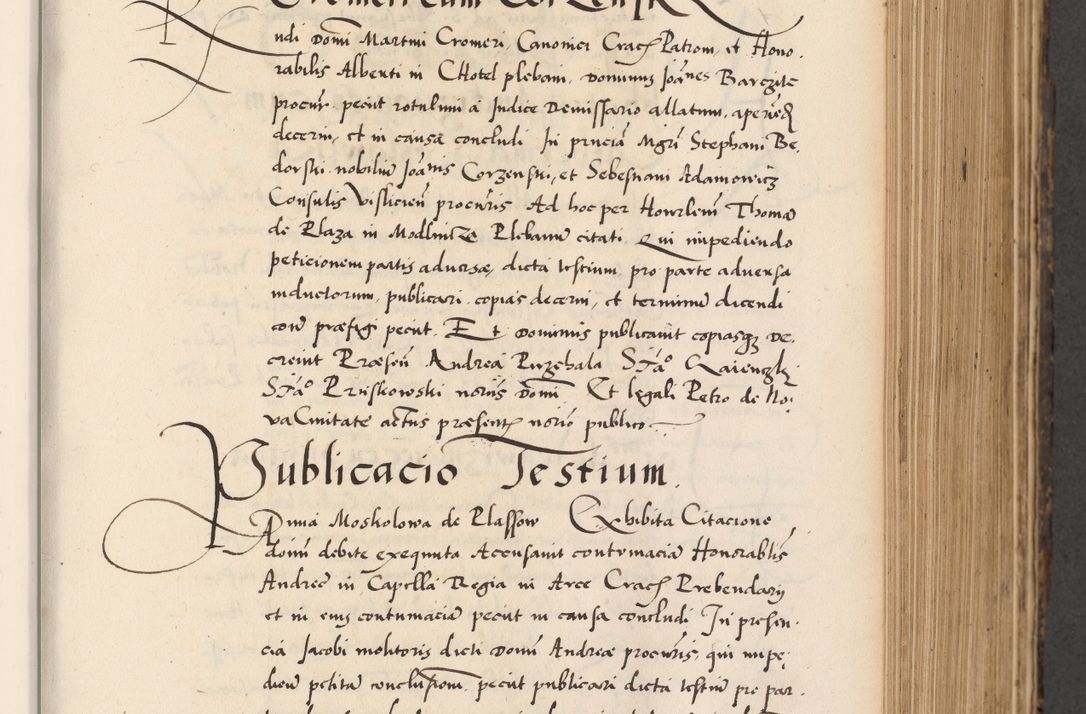 Cromeri cum Corzensk
ndi Domi Martini Cromeri, Canonici Crach Patrom, et Hono,
rabilis Alberti in CHotel plebani. Dominus Joañes Barczik
procur. peciit rotulum a Judice Demissario allatum, aperiend
decerni, et in causa concludi In pncia Mgri Stephani Be,
dorski. nobiliu Joañis Corzenski, et Sebestiani Adamowicz
Consulis Vislicien procuris Ad hoc per Honrlem Thoma
de Plaza in Modlnitza Plebanu citati. Qui impediendo
peticionem partis adversæ, dicta testium, pro parte adversa
inductorum, publicari. copias decerni, et terminu dicendi
con præfigi peciit. Et Dominus publicavit copiasq3 De,
crevit Præsen Andrea Przechala
Sta° Pruskowski noriis Domi Et legali Petro de No,
va Civitate actus præsent norio publico
Publicacio Testium.
Anna Moskolowa de Plassow Exhibita Citacione
domi debite exequuta Accusavit contumacia Honorablis
Andree in Capella Regia in Arce Crach Prebendarii
et in eius contumacia peciit in causa concludi In presen,
cia Jacobi molitoris dicti Domi Andreæ procuris, qui impe,
dien petita conclusionem, peciit publicari dicta testiu pro par,